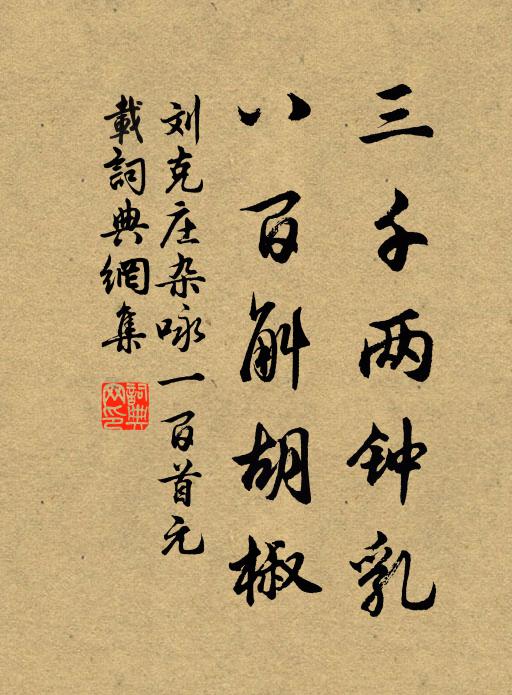 三千两钟乳
八百斛胡椒
刘克庄杂咏一百首元
載詞典網集
詞典
网印